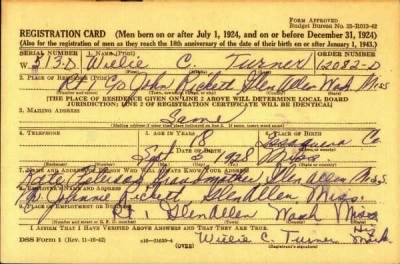 FORM APPROVED
Budget Bureau No. 33-R013-42
REGISTRATION CARD (Men born on or after July 1, 1924, and on or before December 31, 1924)
(Also for the registration of men as they reach the 18th anniversary of the date of their birth on or after January 1, 1943.)
SERIAL NUMBER 1. NAME (Print) ORDER NUMBER
W 513-D Willie C. Turner 12082-D
2. PLACE OF RESIDENCE (Print)
C/o John Glen Allen Wash Miss
[THE PLACE OF RESIDENCE GIVEN ON LINE 2 ABOVE WILL DETERMINE LOCAL BOARD
JURISDICTION; LINE 2 OF REGISTRATION CERTIFICATE WILL BE IDENTICAL]
3. MAILING ADDRESS
Same
4. TELEPHONE 5. AGE IN YEARS 6. PLACE OF BIRTH
Co
DATE OF BIRTH
2 1928 Miss
7. NAME AND ADDRESS OF PERSON WHO WILL ALWAYS KNOW YOUR ADDRESS
Grandmother Glen Allen Miss
8. EMPLOYER'S NAME AND ADDRESS
Johnnie Glen Allen, Miss.
9. PLACE OF EMPLOYMENT OR BUSINESS
Rt. 1 Glen Allen Wash Miss
I AFFIRM THAT I HAVE VERIFIED ABOVE ANSWERS AND THAT THEY ARE TRUE.
DSS Form 1 (Rev. 11-16-42) (OVER) Willie C. Turner
his
mark
(Registrant's signature)